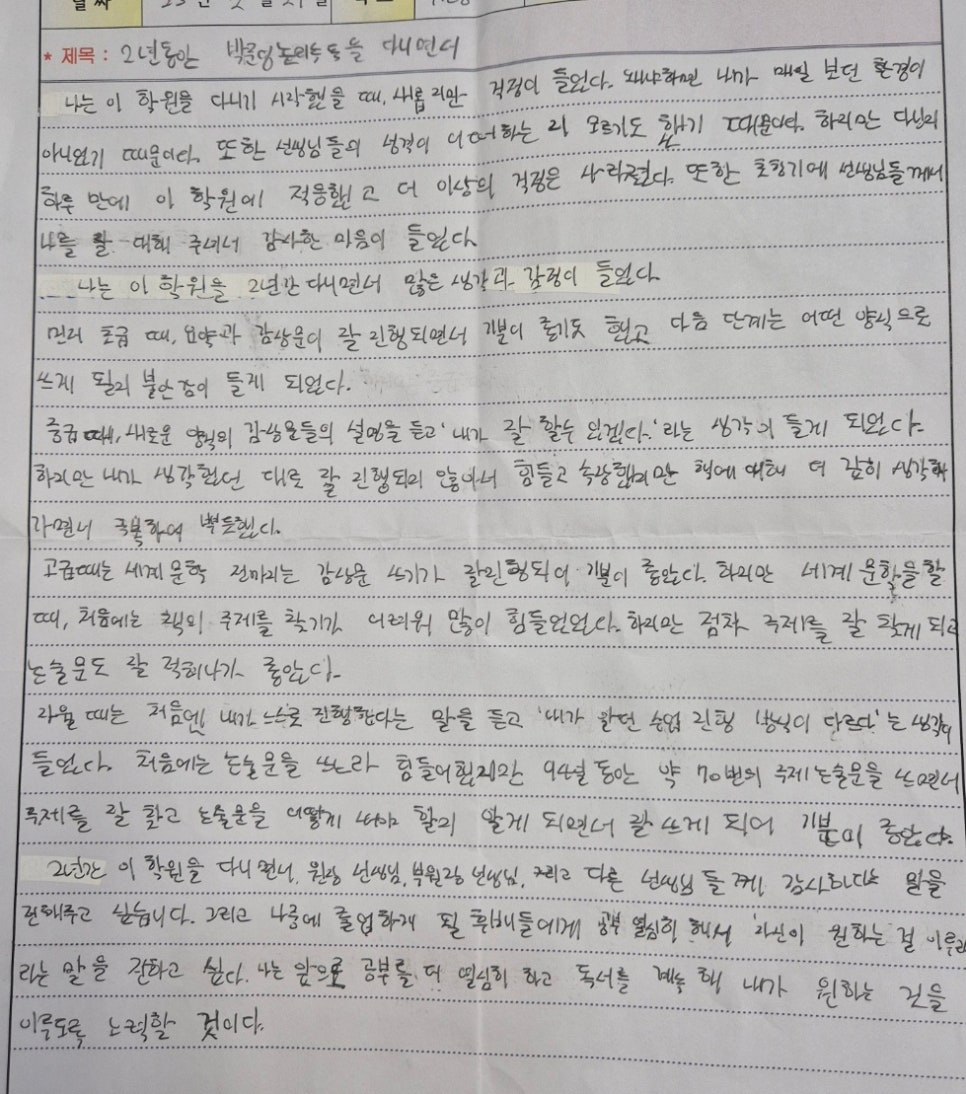 * 제목 : 2년동안 논술을 다니면서
나는 이 학원을 다니기 시작했을 때, 새롭지만 걱정이 들었다. 왜냐하면 나가 매일 보던 환경이
아니었기 때문이다. 또한 선생님들의 성격이 어떠하는 지 모르기도 했기 때문이다. 하지만 다닌지
하루 만에 이 학원에 적응했고 더 이상의 걱정은 사라졌다. 또한 초창기에 선생님들께서
나를 잘 대해 주셔서 감사한 마음이 들었다.
나는 이 학원을 2년간 다니면서 많은 생각과 감정이 들었다.
먼저 초급 때, 요약과 감상문이 잘 진행되면서 기분이 좋기도 했고 다음 단계는 어떤 양식으로
쓰게 될지 불안감이 들게 되었다.
중급 때, 새로운 양식의 감상문들의 설명을 듣고 '내가 잘 할수 있겠다.'라는 생각이 들게 되었다.
하지만 내가 생각했던 대로 잘 진행되지 않아서 힘들고 속상했지만 책에 대해 더 깊히 생각하
라면서 극복하여 뿌듯했다.
고급때는 세계 문학 전까지는 감상문 쓰기가 잘진행되어 기분이 좋았다. 하지만 세계 문학을할
때, 처음에는 책의 주제를 찾기가 어려워 많이 힘들었었다. 하지만 점차 주제를 잘 찾게 되고
논술문도 잘 적혀나가 좋았다.
자율 때는 처음엔 내가 스스로 진행한다는 말을 듣고 '내가 하던 수업 진행 방식이 다르다'는 생각이
들었다. 처음에는 논술문을 쓰느라 힘들어했지만 9개월 동안 약 70번의 주제 논술문을 쓰면서
주제를 잘 찾고 논술문을 어떻게 써야 할지 알게 되면서 잘 쓰게 되어 기분이 좋았다.
2년간 이 학원을 다니면서, 원장 선생님, 부원장 선생님, 그리고 다른 선생님 들께 감사하다는 말을
전해주고 싶습니다. 그리고 나중에 졸업하게 될 후배들에게 공부 열심히 해서 '자신이 원하는 걸 이루라
라는 말을 전하고 싶다. 나는 앞으로 공부를 더 열심히 하고 독서를 계속 해 내가 원하는 것을
이루도록 노력할 것이다.